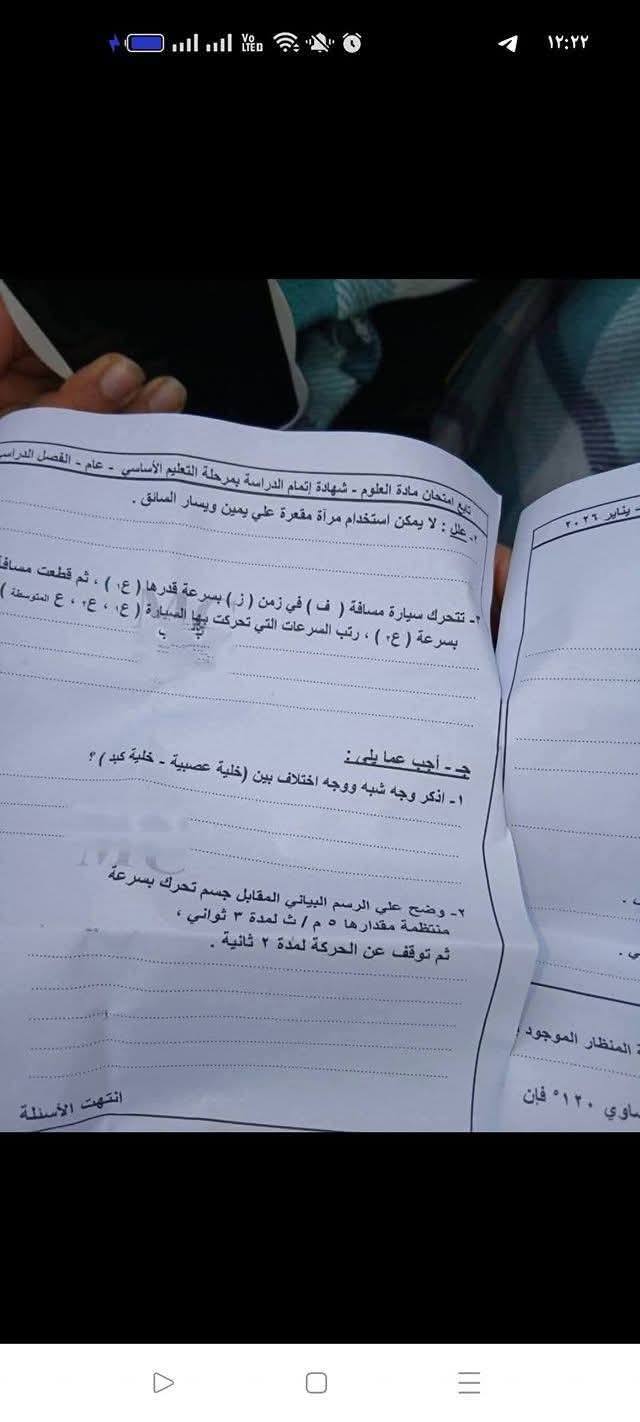 ١٢:٢٢
Vo
LTED
تابع امتحان مادة العلوم - شهادة إتمام الدراسة بمرحلة التعليم الأساسي - عام - الفصل
- يناير ٢٠٢٦
علل : لا يمكن استخدام مرآة مقعرة علي يمين ويسار السائق .
٣- تتحرك سيارة مسافة ( ف ) في زمن ( ز ) بسرعة قدرها ( ع١ ) ، ثم قطعت
بسرعة ( ع٢ ) ، رتب السرعات التي تحركت بها السيارة ( ع١ ، ع٢ ، ع المتوسطة )
جـ - أجب عما يلي :
١- اذكر وجه شبه ووجه اختلاف بين (خلية عصبية - خلية كبد ) ؟
٢- وضح علي الرسم البياني المقابل جسم تحرك بسرعة
منتظمة مقدارها ٥ م / ث لمدة ٣ ثواني ،
ثم توقف عن الحركة لمدة ٢ ثانية .
انتهت الأسئلة
المنظار الموجود
١٢٠° فإن